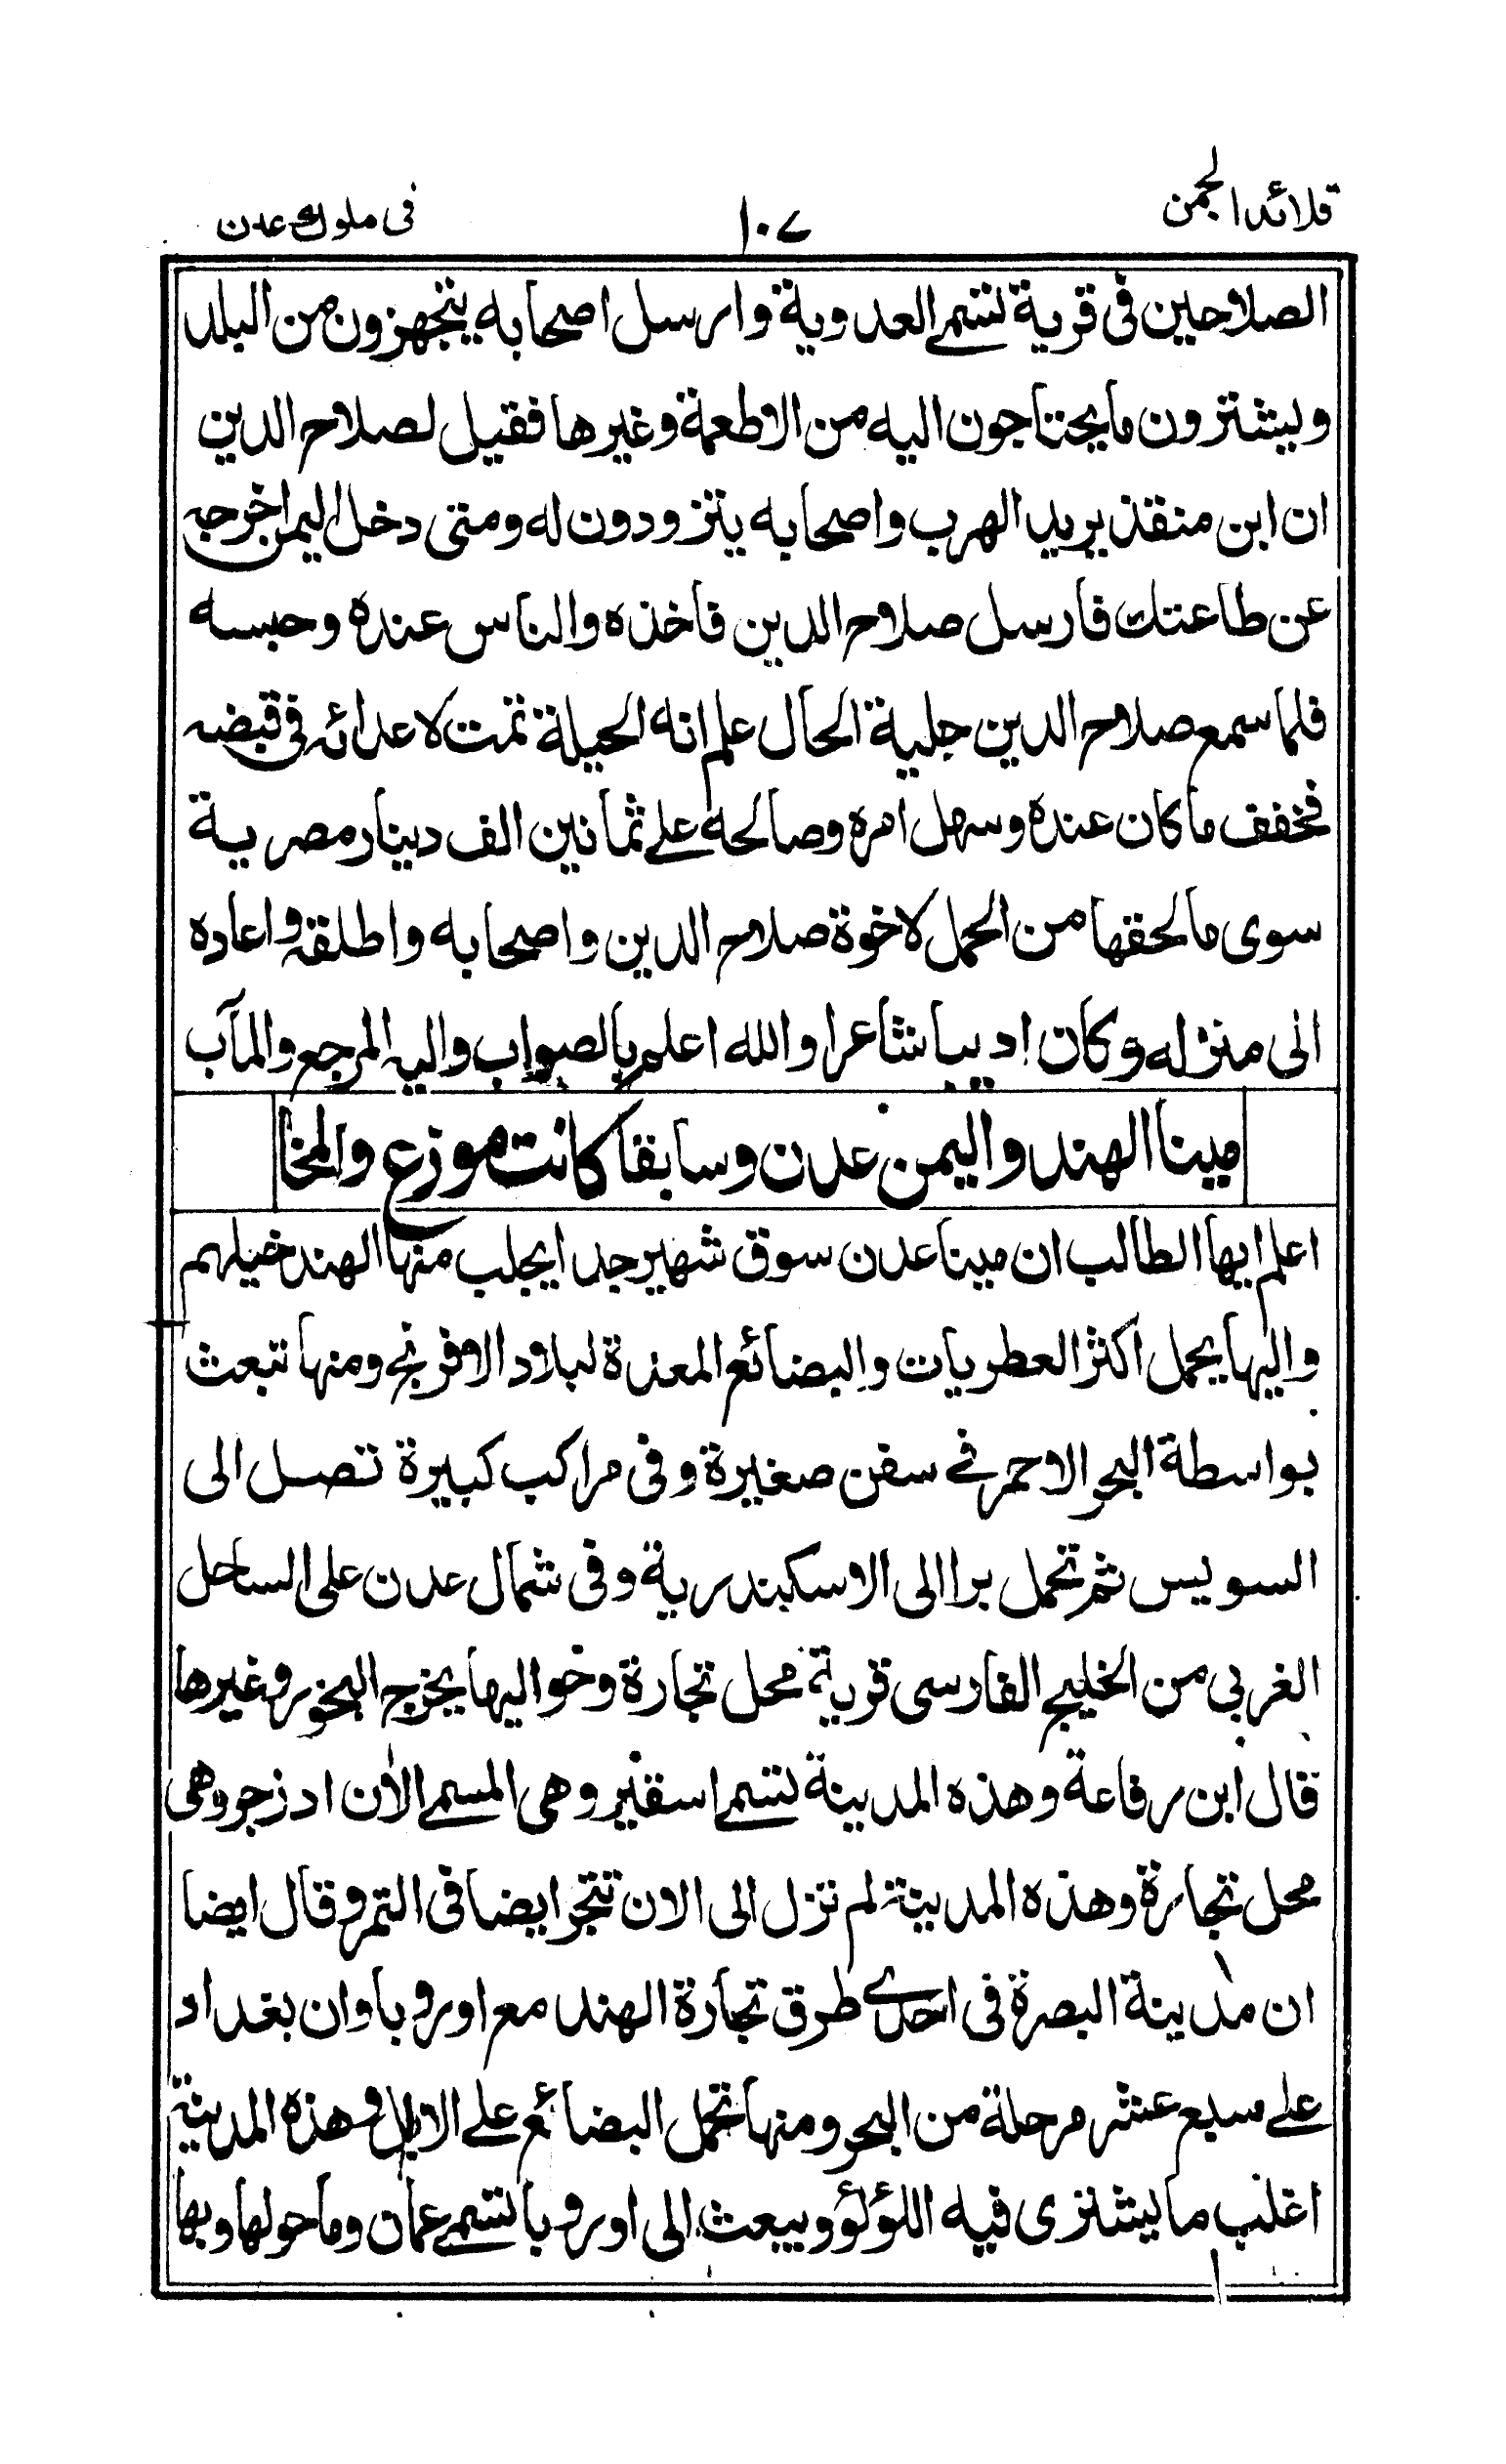 قلائد الجمن
١٠٧
في ملوك عدن
الصلاحين في قرية تسمى العدوية وارسل اصحابه يتجهزون من البلد
ويشترون ما يحتاجون اليه من الاطعمة وغيرها فقيل لصلاح الدين
ان ابن منقذ يريد الهرب واصحابه يتزودون له ومتى دخل اليمن اخرجه
عن طاعتك فارسل صلاح الدين فاخذه والناس عنده وحبسه
فلما سمع صلاح الدين جلية الحال علم انه الحيلة تمت لاعدائه في قبضه
فخفف ما كان عنده وسهل امره وصالحه على ثمانين الف دينار مصرية
سوى ما لحقها من الحمل لاخوة صلاح الدين واصحابه واطلقه واعاده
الى منزله وكان اديبا شاعرا والله اعلم بالصواب واليه المرجع والمآب
مينا الهند واليمن عدن وسابقا كانت موزع والمخا
اعلم ايها الطالب ان مينا عدن سوق شهير جدا يجلب منها الهند خيلهم
واليها يحمل اكثر العطريات والبضائع المعدة لبلاد الافرنج ومنها تبعث
بواسطة البحر الاحمر في سفن صغيرة وفي مراكب كبيرة تصل الى
السويس ثم تحمل برا الى الاسكندرية وفي شمال عدن على الساحل
الغربي من الخليج الفارسى قرية محل تجارة وحواليها يخرج البخور وغيرها
قال ابن رفاعة وهذه المدينة تسمى اسقير وهي المسمى الان ادزجر وهى
محل تجارة وهذه المدينة لم تزل الى الان تتجر ايضا في التمر وقال ايضا
ان مدينة البصرة في احدى طرق تجارة الهند مع اوروبا وان بغداد
على سبع عشر مرحلة من البحر ومنها تحمل البضائع على الابل وهذه المدينة
اغلب ما يشترى فيه اللؤلؤ ويبعث الى اوروبا تسمى عمان وما حولها وبها